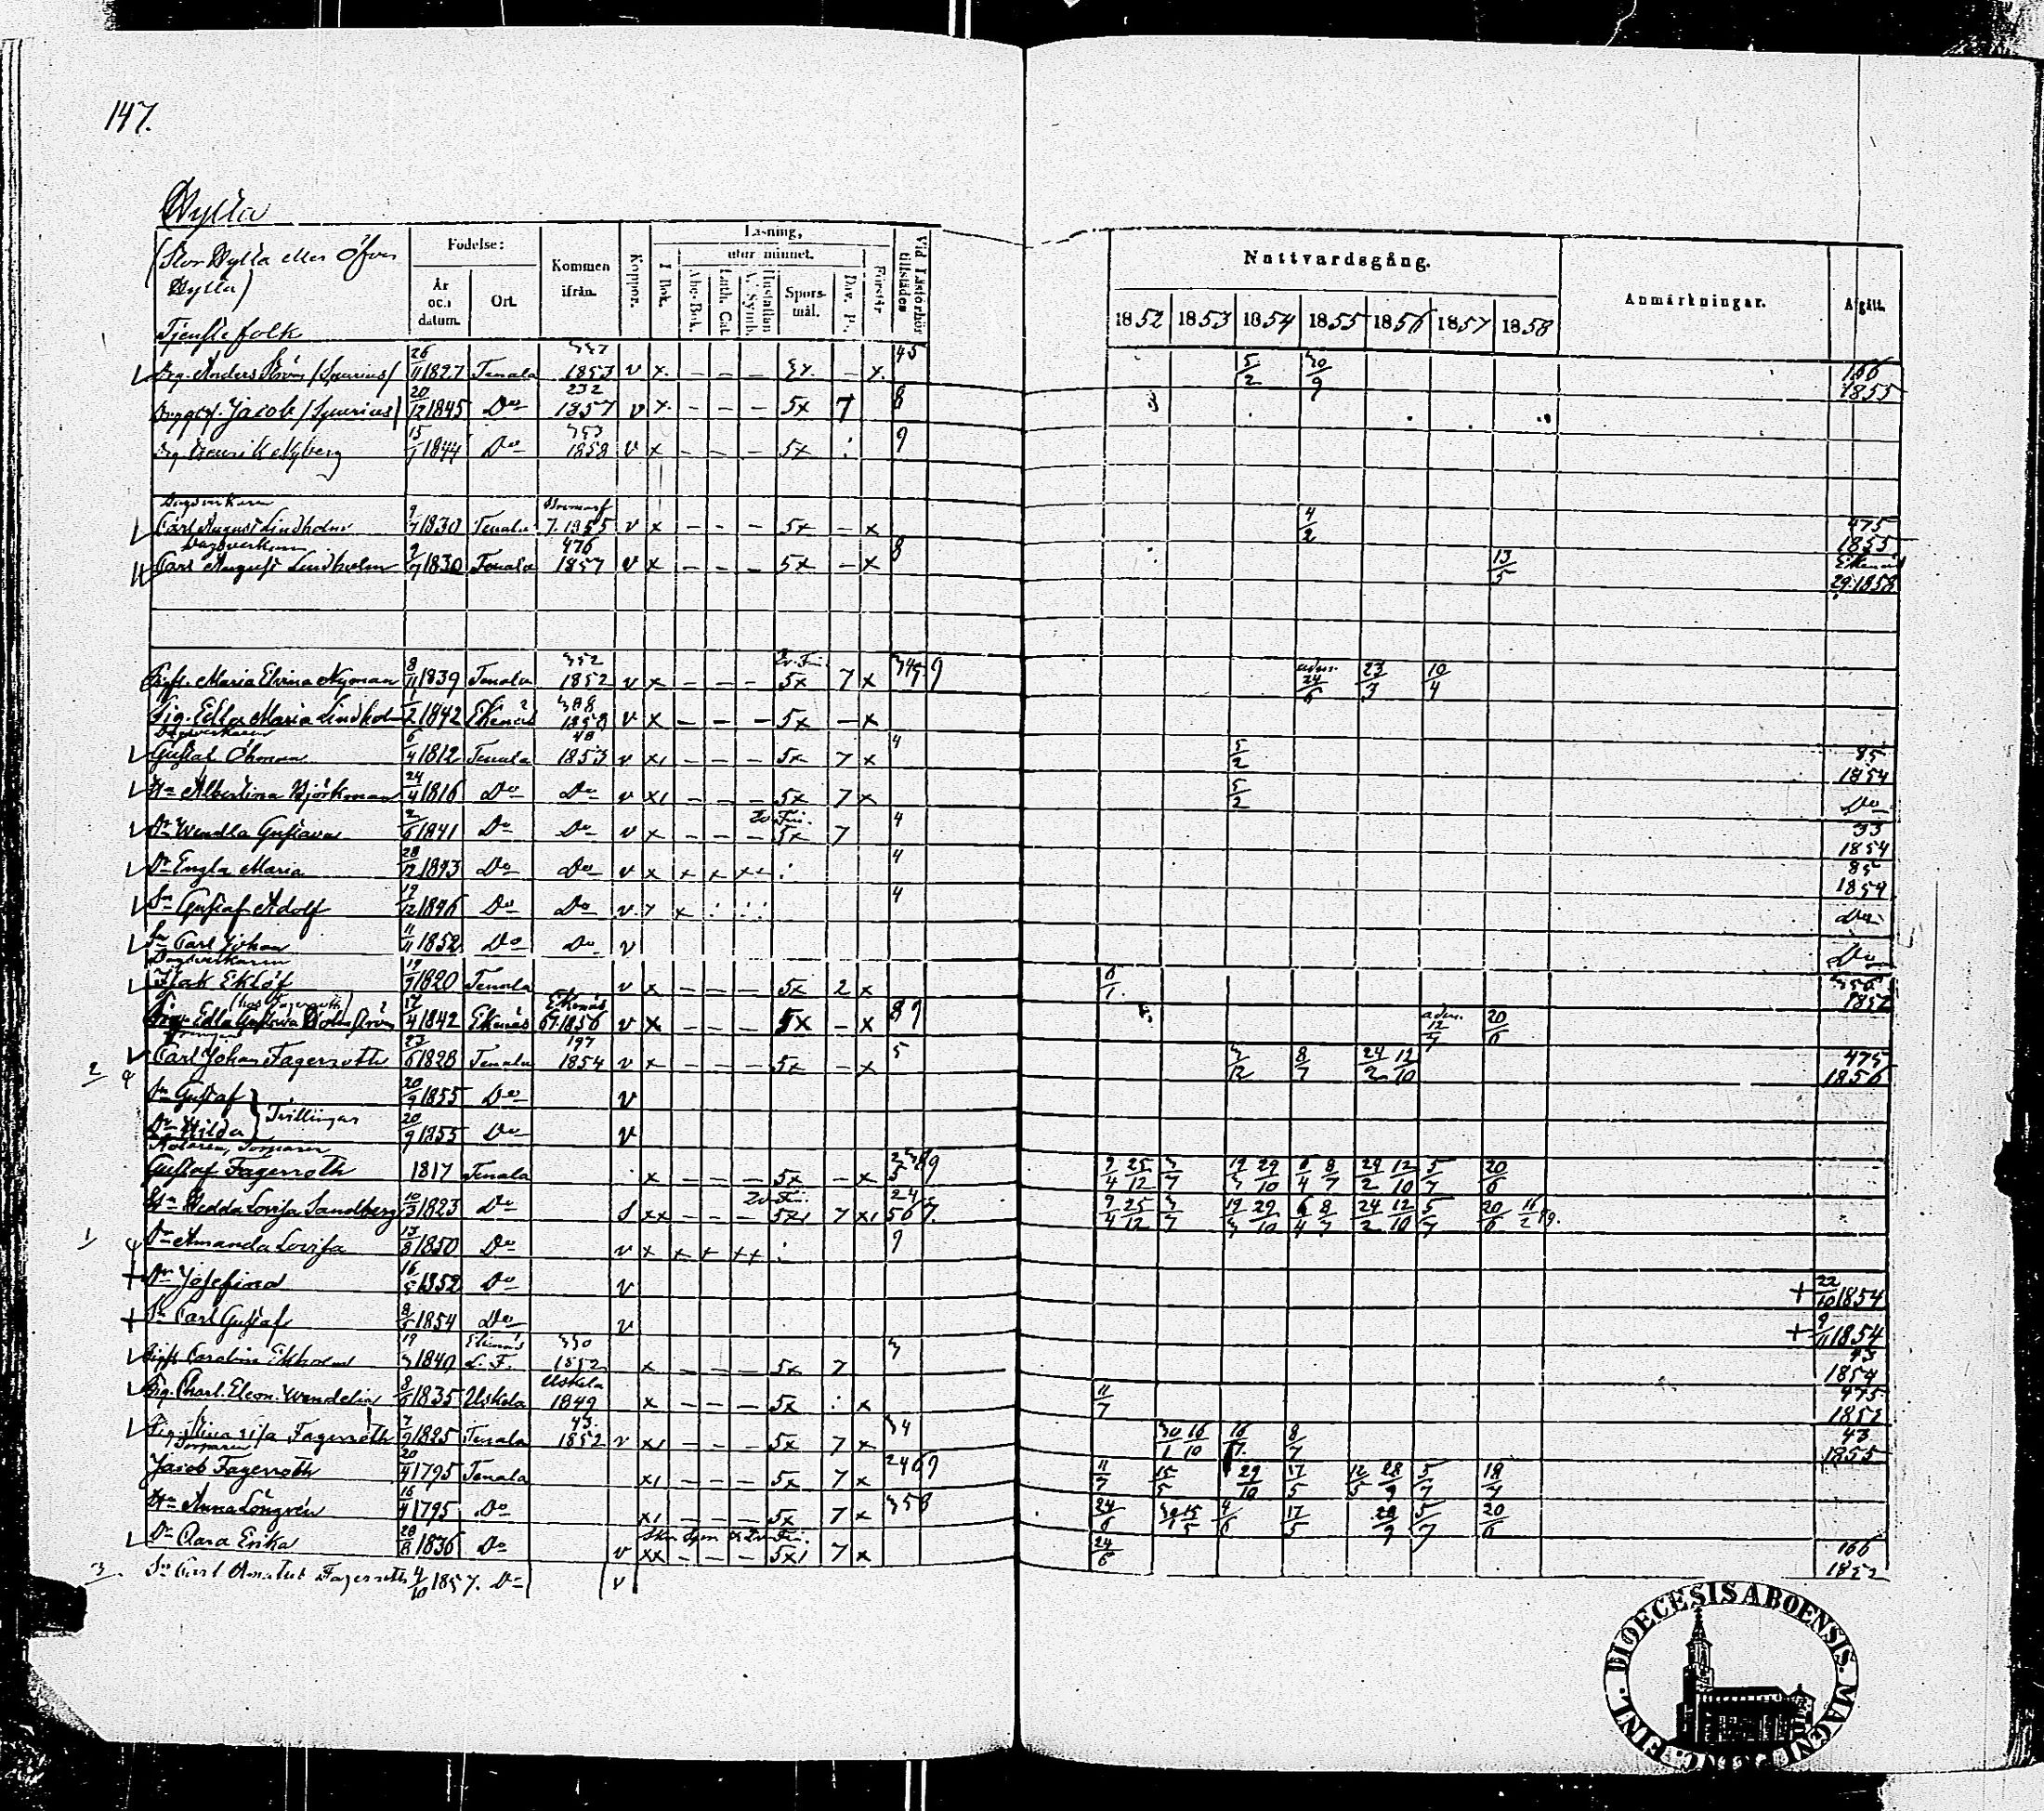 147.
Dylta
(Stor Dylta eller Öfver
Dylta)
Tjenstefolk
Födelse:
År och datum.
Ort.
Kommen ifrån.
Koppor.
Läsning,
utur minnet.
I Bok.
Abc-Bok.
Luth. Cat.
Hustaflan
A. Symb.
Spörs-mål.
Dav. Ps.
Förstår
Vid Läsförhör tillstädes
Nattvardsgång.
1852 1853 1854 1855 1856 1857 1858
Anmärkningar.
Afgått.
Drg. Anders Ström (Spurius) 26/11 1827 Tenala 1853 v x. – – – – x. 45 5/2 30/9 166 1855
Jacob (Spurius) 20/12 1845 Do 232 1857 v x. – – – 5x 7 8
Drg Henrik Nyberg 15/1 1844 Do 353 1858 v x – – – 5x : 9
Dagsverkaren
Carl August Lindholm 9/7 1830 Tenala Bromarf 7. 1855 v x – – – 5x – x 4/2 475 1855
Dagsverkaren
Carl August Lindholm 9/7 1830 Tenala 476 1857 v x – – – 5x – x 8 13/5 Ekenäs 29. 1858
Maria Elvina Nyman 8/11 1839 Tenala 352 1852 v x – – – 5x 7 x 9 adm. 24/6 23/3 10/4
Pig. Edla Maria Lindholm 1/2 1842 Ekenäs 388 1858 v x – – – 5x – x
Dagsverkaren
Gustaf Öhman 6/4 1812 Tenala 48 1853 v x1 – – – 5x 7 x 4 5/2 85 1854
Hu Albertina Björkman 24/4 1816 Do Do v x1 – – – 5x 7 x 5/2 Do
Dr Wendla Gustava 2/6 1841 Do Do v x – – – 5x 7 4 33 1854
Dr Engla Maria 28/12 1843 Do Do v x x x x+ : 4 85 1854
Sn Gustaf Adolf 19/12 1846 Do Do v 7 x : : : 4 Do
Sn Carl Johan 11/11 1852 Do Do v Do
Dagsverkaren
Isak Eklöf 19/9 1820 Tenala v x – – – 5x 2 x 6/1. 1852
(hos Fagerroth)
Edla Gustava 14/4 1842 Ekenäs Ekenäs 67. 1856 v x – – – 5x – x 89 adm. 12/7 20/6
Carl Johan Fagerroth 23/6 1828 Tenala 197 1854 v x – – – 5x – x 5 3/12 8/7 24/2 12/10 475 1856
2
Sn Gustaf 20/9 1855 Do v
Tvillingar
Dr Hilda 20/9 1855 Do v
Torparen
Gustaf Fagerroth 1817 Tenala x – – – 5x – x 9/4 25/12 3/7 19/3 29/10 6/4 8/7 24/2 12/10 5/7 20/6
Hu Hedda Lovisa Sandberg 10/3 1823 Do s xx – – – 5x1 7 x1 9/4 25/12 3/7 19/3 29/10 6/4 8/7 24/2 12/10 5/7 20/6 16/2 59.
1
Dr Amanda Lovisa 13/8 1850 Do v x x + ++ : 9
+ Dr Josefina 16/5 1852 Do v + 22/10 1854
+ Sn Carl Gustaf 8/5 1854 Do v + 9/11 1854
Carolin Ekholm 19/3 1840 Ekenäs L. F. 330 1852 x – – – 5x 7 3 43 1854
Pig. Charl. Eleon. Wendelin 8/6 1835 Uskela Uskela 1849 x – – – 5x : x 11/7 475 1852
Pig. Fagerroth 7/9 1825 Tenala 43. 1852 v x1 – – – 5x 7 x 34 30/1 16/10 16/7. 8/7 43 1855
Torparen
Jacob Fagerroth 20/4 1795 Tenala x1 – – – 5x 7 x 2469 11/7 15/5 29/10 17/5 12/5 28/9 5/7 18/7
Hu Anna Löngren 16/4 1795 Do x1 – – – 5x 7 x 358 24/6 30/1 15/5 4/6 17/5 28/9 5/7 20/6
Dr Clara Erika 28/8 1836 Do v xx – – – 5x1 7 x 24/6 166 1852
3.
Sn Carl Amatus Fagerroth 4/10 1857. Do v
DIOECESIS ABOENSIS. MAGNI DUC. FINL.